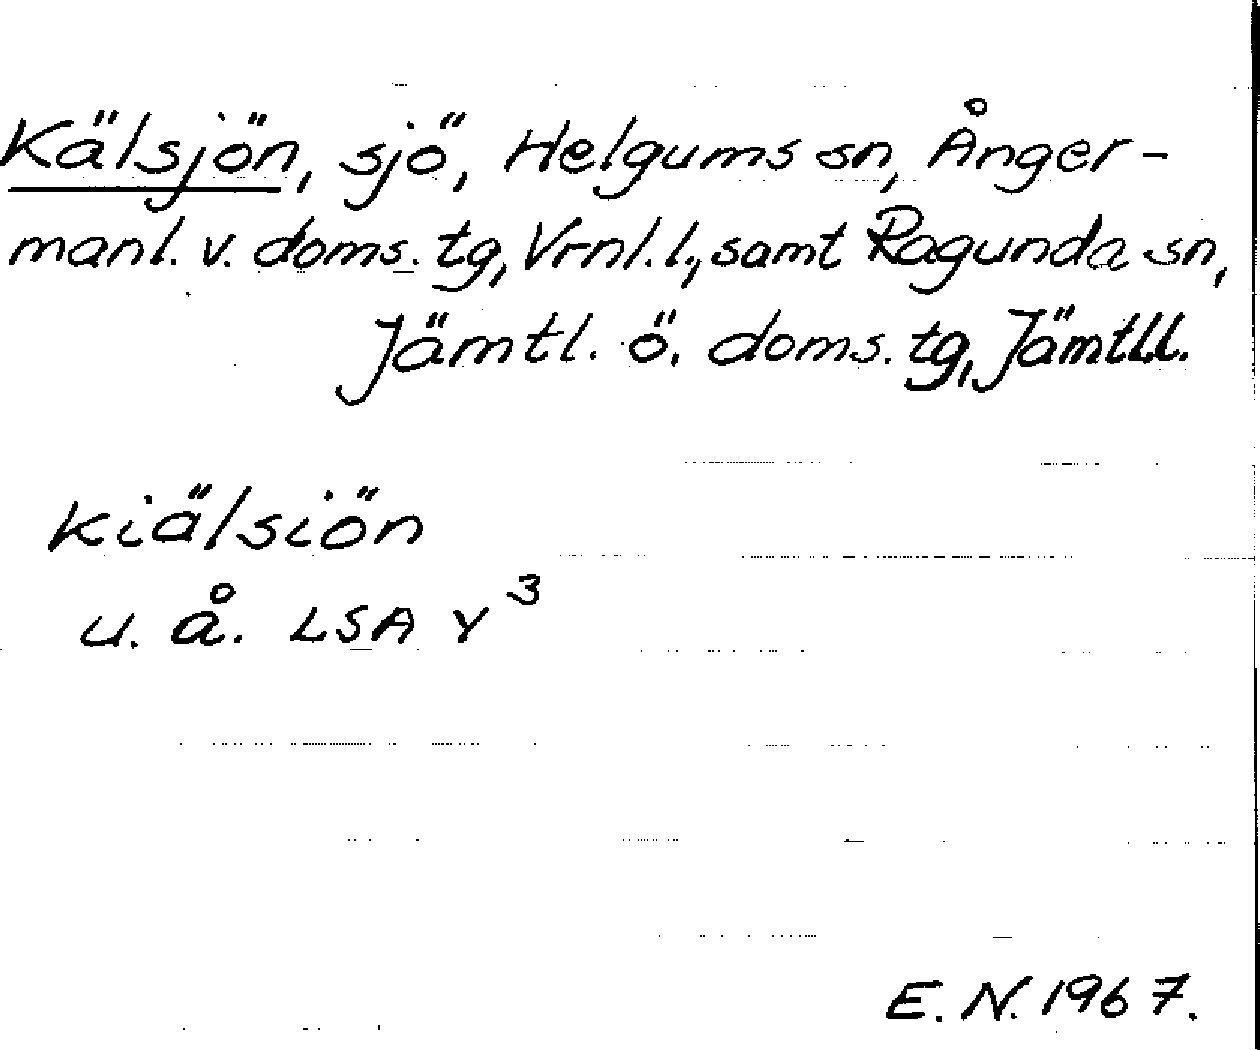 Kälsjön, sjö, Helgums sn, Ånger-
manl. v. doms. tg, Vrnl. l., samt Ragunda sn,
Jämtl. ö. doms. tg, Jämtl.l.
kiälsiön
u. å. LSA Y³
E. N. 1967.